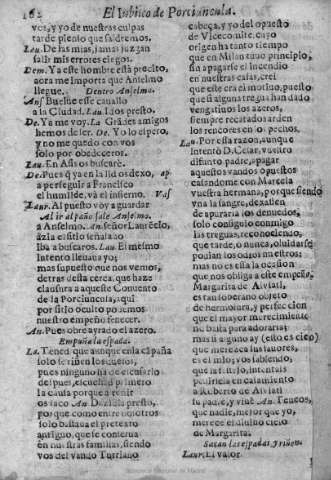 162 El Iubileo de Porciuncula.
vos, y yo de nuestras culpas
tarde pienso que saldremos.
Lau. De las mias, jamas juzgan
salir mis errores ciegos.
Dem. Ya este hombre està precito,
aora me importa que Anselmo
llegue. Dentro Anselmo.
Ans. Buelue esse cauallo
a la Ciudad. Lau. Lidos presto.
De. Ya me voy. La. Grādes amigos
hemos de ser. De. Yo lo espero,
y no me quedo con vos
solo por obedeceros.
Lau. En Asis os buscarè.
De. Pues q̃ ya en la lid os dexo, ap
a perseguir a Francisco
el humilde, và el infierno. Vas
Laur. Al puesto voy a guardar
Al ir al paño sale Anselmo.
a Anselmo. An. señor Laurēcio,
àzia el sitio señalado
iba a buscaros. Lau. El mesmo
intento lleuaua yo;
mas supuesto que nos vemos,
detras desta cerca, que haze
clausura a aqueste Conuento
de la Porciuncula, aqui
por sitio oculto podemos
nuestro empeño fenecer.
An. Pues obre ayrado el azero.
Empuña la espada.
La. Tened, que aunque en la cāpaña
solo riñen los
pues ninguno ha de escusarlo
despues, escuchad primero
la causa porque a reñir
os saco. An. Dezidla presto,
porque como entre nosotros
solo bastaua el pretexto
antiguo, que se conserua
en nuestras familias, siendo
vos del vando Turriano
cabeça, y yo del opuesto
de Viceconite, cuyo
origen ha tanto tiempo
que en Milan tuuo principio,
sin apagarse el incendio
en nuestras casas, crei
que este era el motiuo, puesto
que si alguna tregua han dado
vengatiuos los azeros,
siempre recatados arden
los rencores en los pechos.
Lau. Por essa razon, aunque
intentò D. Cesar, vuestro
difunto padre, apagar
aquestos vandos opuestos
casandome con Marcela
vuestra hermana, porque siendo
vna la sangre, dexassen
de apurarla los denuedos,
solo consiguio conmigo
las treguas, reconociendo,
que tarde, o nunca, oluidarse
podian los odios nuestros:
mas no es esta la ocasion
que nos obliga a este empeño,
Margarita de Aiviati,
es tan soberano objeto
de hermosura, y perfeccion
que el mayor merecimiento
no basta para adorarla;
mas si alguno ay (esto es cierto)
que merezca sus fauores,
es el mio; y os sabiendo,
que
pedirla en casamiento
a Roberto de Aiviati
su padre, y assi. An. Teneos,
que nadie, mejor que yo,
merece el diuino cielo
de Margarita.
Sacan las espadas, y riñen.
Laur. El valor.
Biblioteca Nacional de Madrid